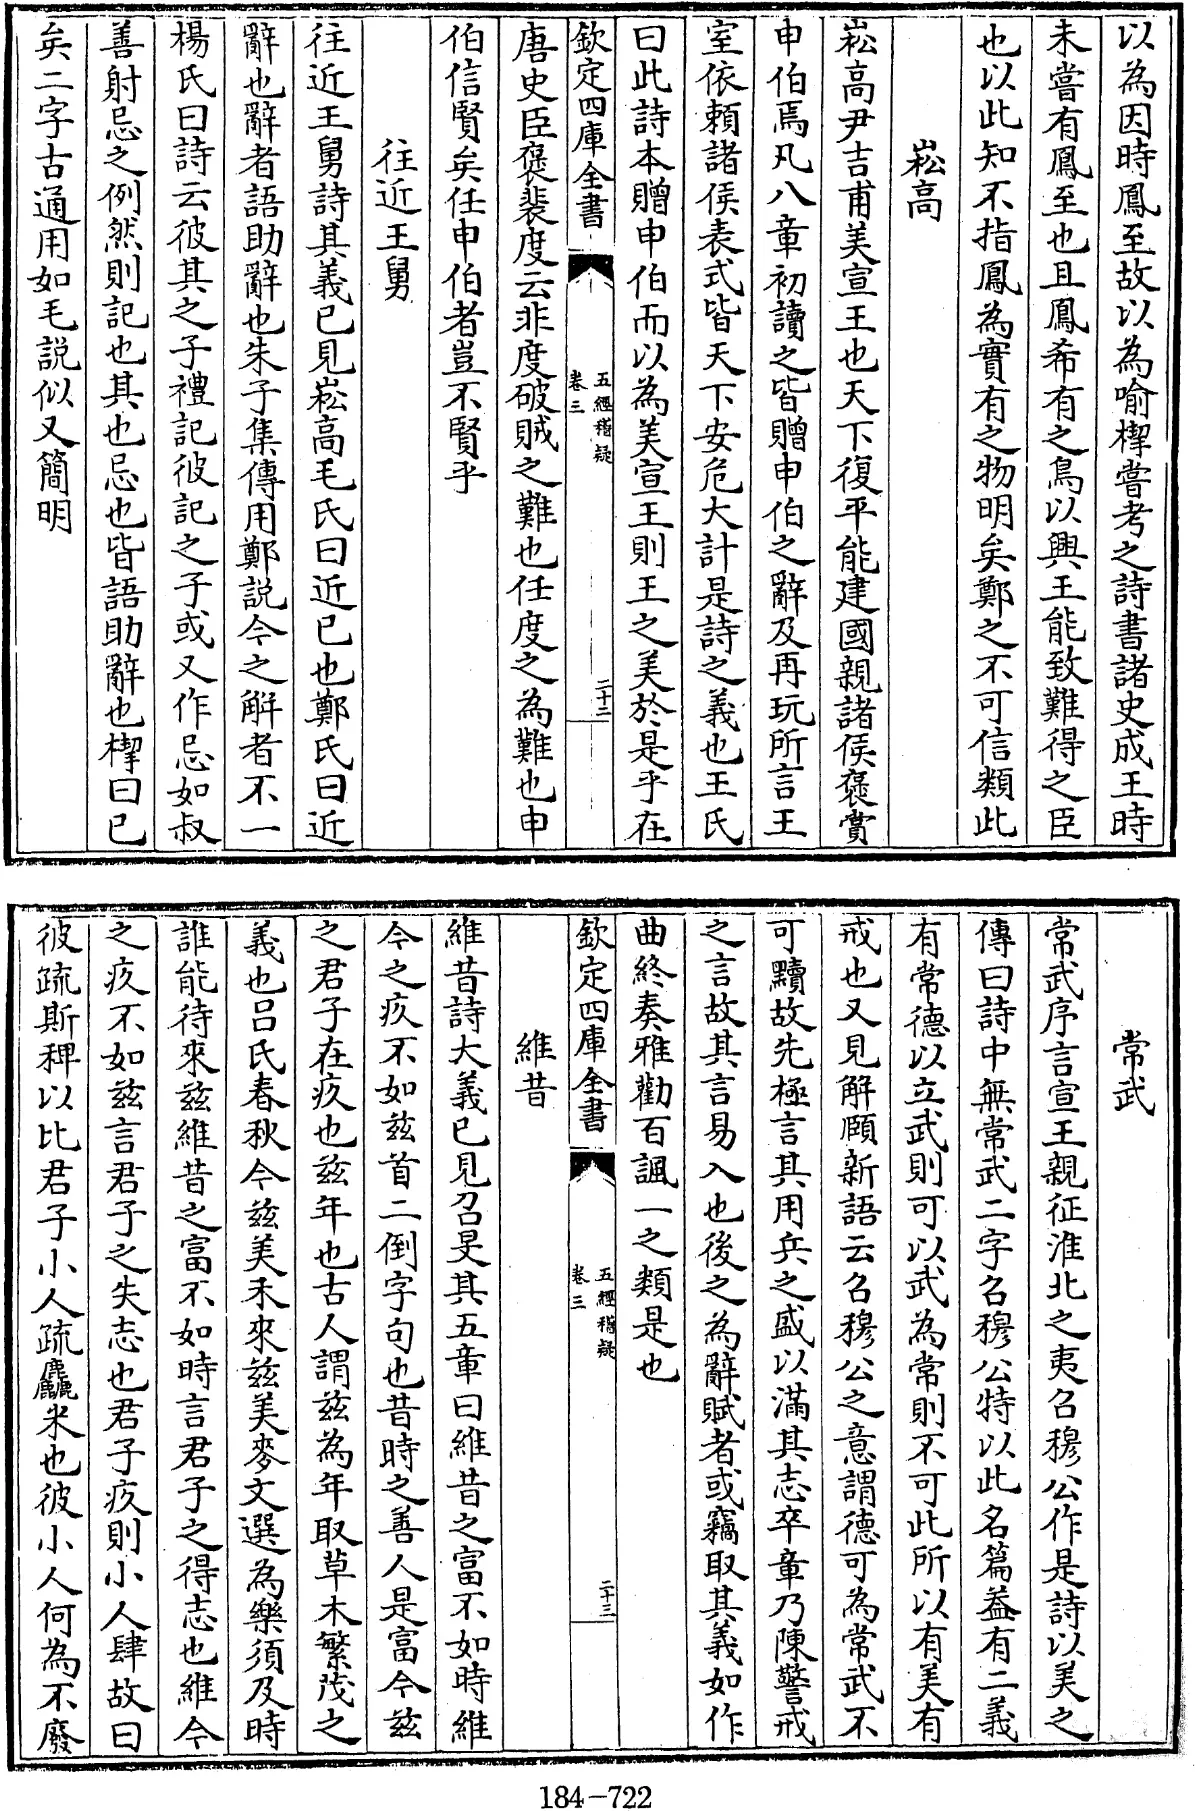 以為因時鳳至故以為喻㮮嘗考之詩書諸史成王時
未嘗有鳳至也且鳳希有之鳥以興王能致難得之臣
也以此知不指鳳為實有之物明矣鄭之不可信類此
崧高
崧高尹吉甫美宣王也天下復平能建國親諸侯褒賞
申伯焉凡八章初讀之皆贈申伯之辭及再玩所言王
室依賴諸侯表式皆天下安危大計是詩之義也王氏
曰此詩本贈申伯而以為美宣王則王之美於是乎在
欽定四庫全書
五經稽疑
卷三
二十二
唐史臣褒裴度云非度破賊之難也任度之為難也申
伯信賢矣任申伯者豈不賢乎
往近王舅
往近王舅詩其義已見崧高毛氏曰近已也鄭氏曰近
辭也辭者語助辭也朱子集傳用鄭説今之解者不一
楊氏曰詩云彼其之子禮記彼記之子或又作忌如叔
善射忌之例然則記也其也忌也皆語助辭也㮮曰已
矣二字古通用如毛説似又簡明
常武
常武序言宣王親征淮北之夷召穆公作是詩以美之
傳曰詩中無常武二字召穆公特以此名篇葢有二義
有常德以立武則可以武為常則不可此所以有美有
戒也又見解頤新語云召穆公之意謂德可為常武不
可黷故先極言其用兵之盛以滿其志卒章乃陳警戒
之言故其言易入也後之為辭賦者或竊取其義如作
曲終奏雅勸百諷一之類是也
欽定四庫全書
五經稽疑
卷三
二十三
維昔
維昔詩大義已見召旻其五章曰維昔之富不如時維
今之疚不如兹首二倒字句也昔時之善人是富今兹
之君子在疚也兹年也古人謂兹為年取草木繁茂之
義也呂氏春秋今兹美禾來兹美麥文選為樂須及時
誰能待來兹維昔之富不如時言君子之得志也維今
之疚不如兹言君子之失志也君子疚則小人肆故曰
彼疏斯稗以比君子小人疏麤米也彼小人何為不廢
184-722